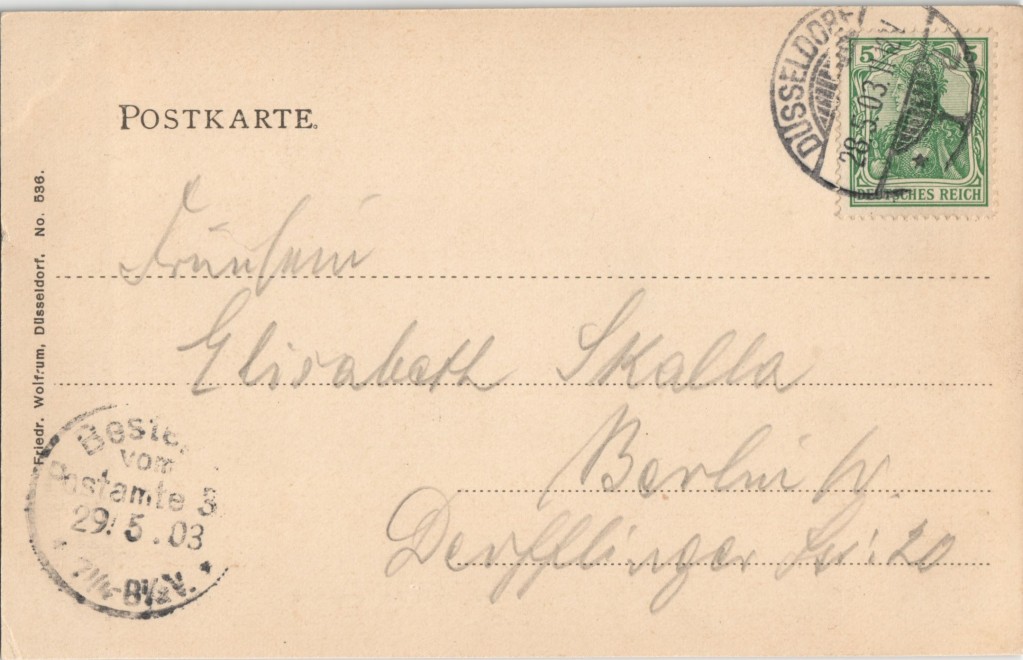 POSTKARTE.
DÜSSELDORF
28.5.03.
5 5
DEUTSCHES REICH
Friedr. Wolfrum, Düsseldorf. No. 536.
Fräulein
Elisabeth Skalla
Berlin W.
Derfflinger Str: 20
Beste
vom
Postamte 3
29.5.03
7¼-8½V.